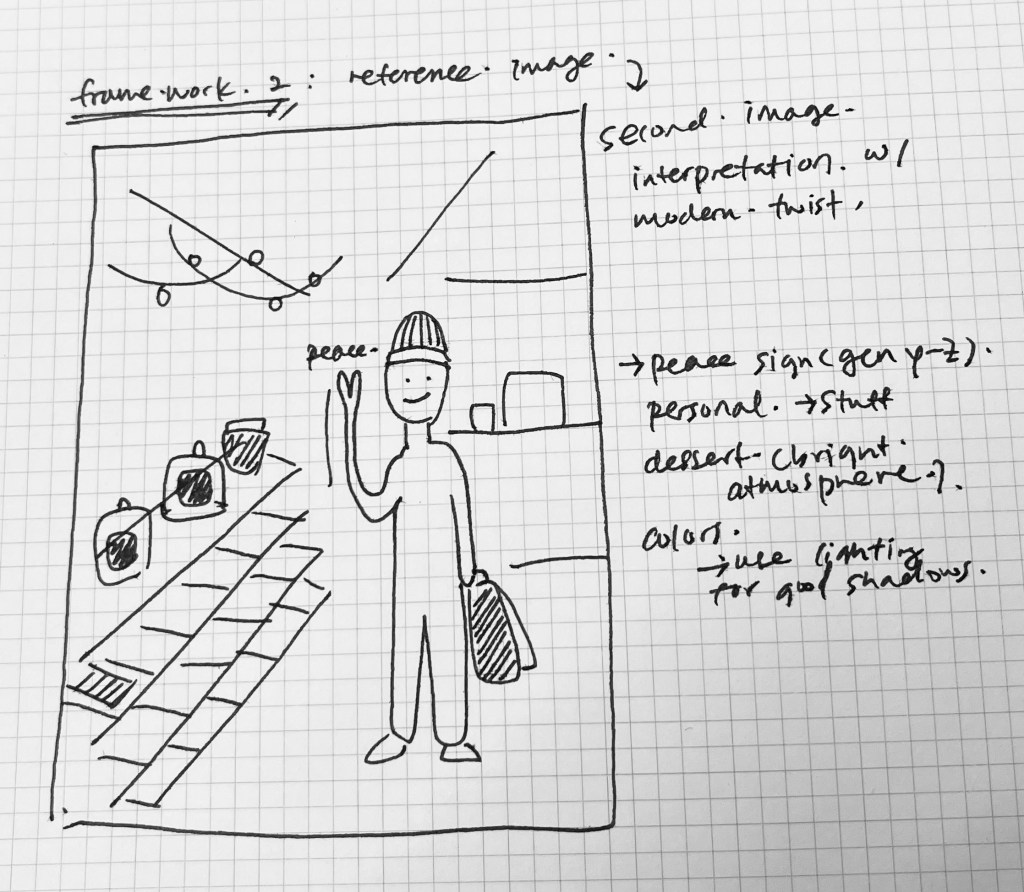 frame.work. 2 : reference. image.
second. image.
interpretation. w/
modern. twist,
peace.
→ peace sign (gen y-z).
personal. → stuff
dessert. (bright.
atmosphere.).
colors.
→ use lighting
for good shadows.